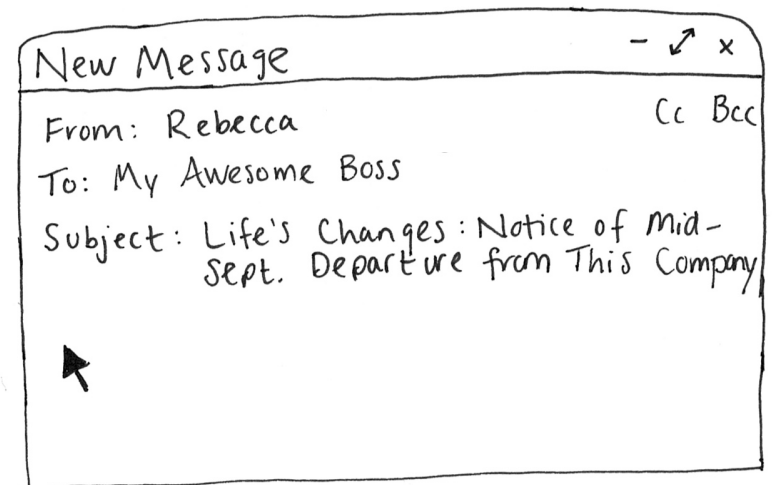 New Message
Cc Bcc
From: Rebecca
To: My Awesome Boss
Subject: Life's Changes: Notice of Mid-
Sept. Departure from This Company